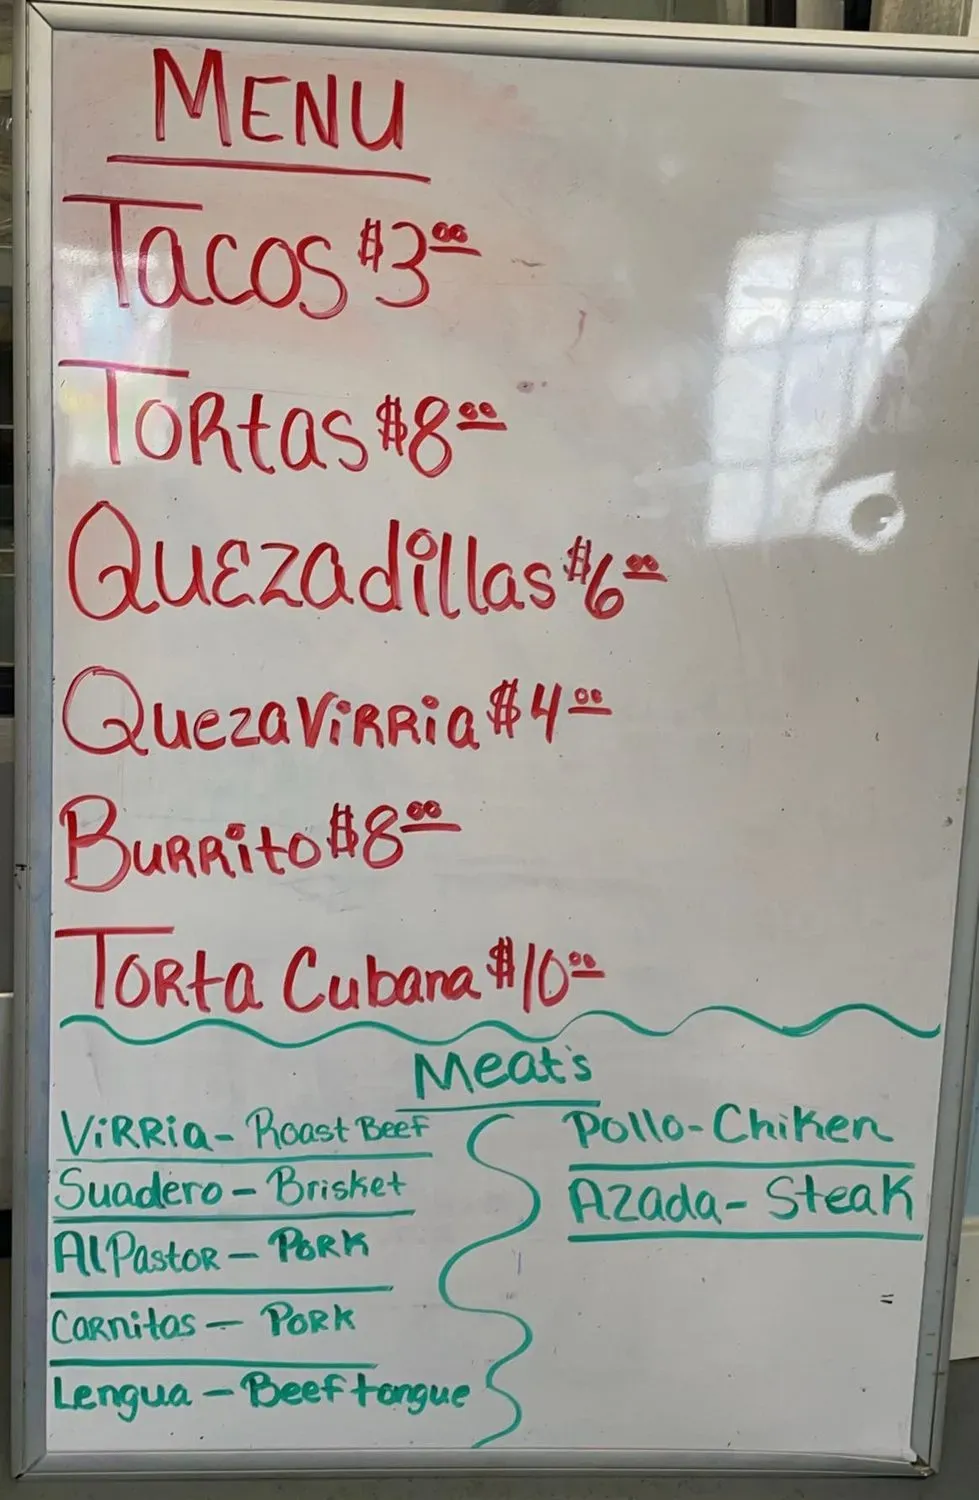 MENU
Tacos $3.00
Tortas $8.00
Quezadillas $6.00
QuezaVirria $4.00
Burrito $8.00
Torta Cubana $10.00
Meat's
Virria - Roast Beef
Suadero - Brisket
Al Pastor - Pork
Carnitas - Pork
Lengua - Beef tongue
Pollo - Chiken
Azada - Steak